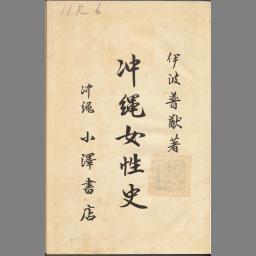 11R6
伊波普猷著
沖縄女性史
沖縄 小澤書店